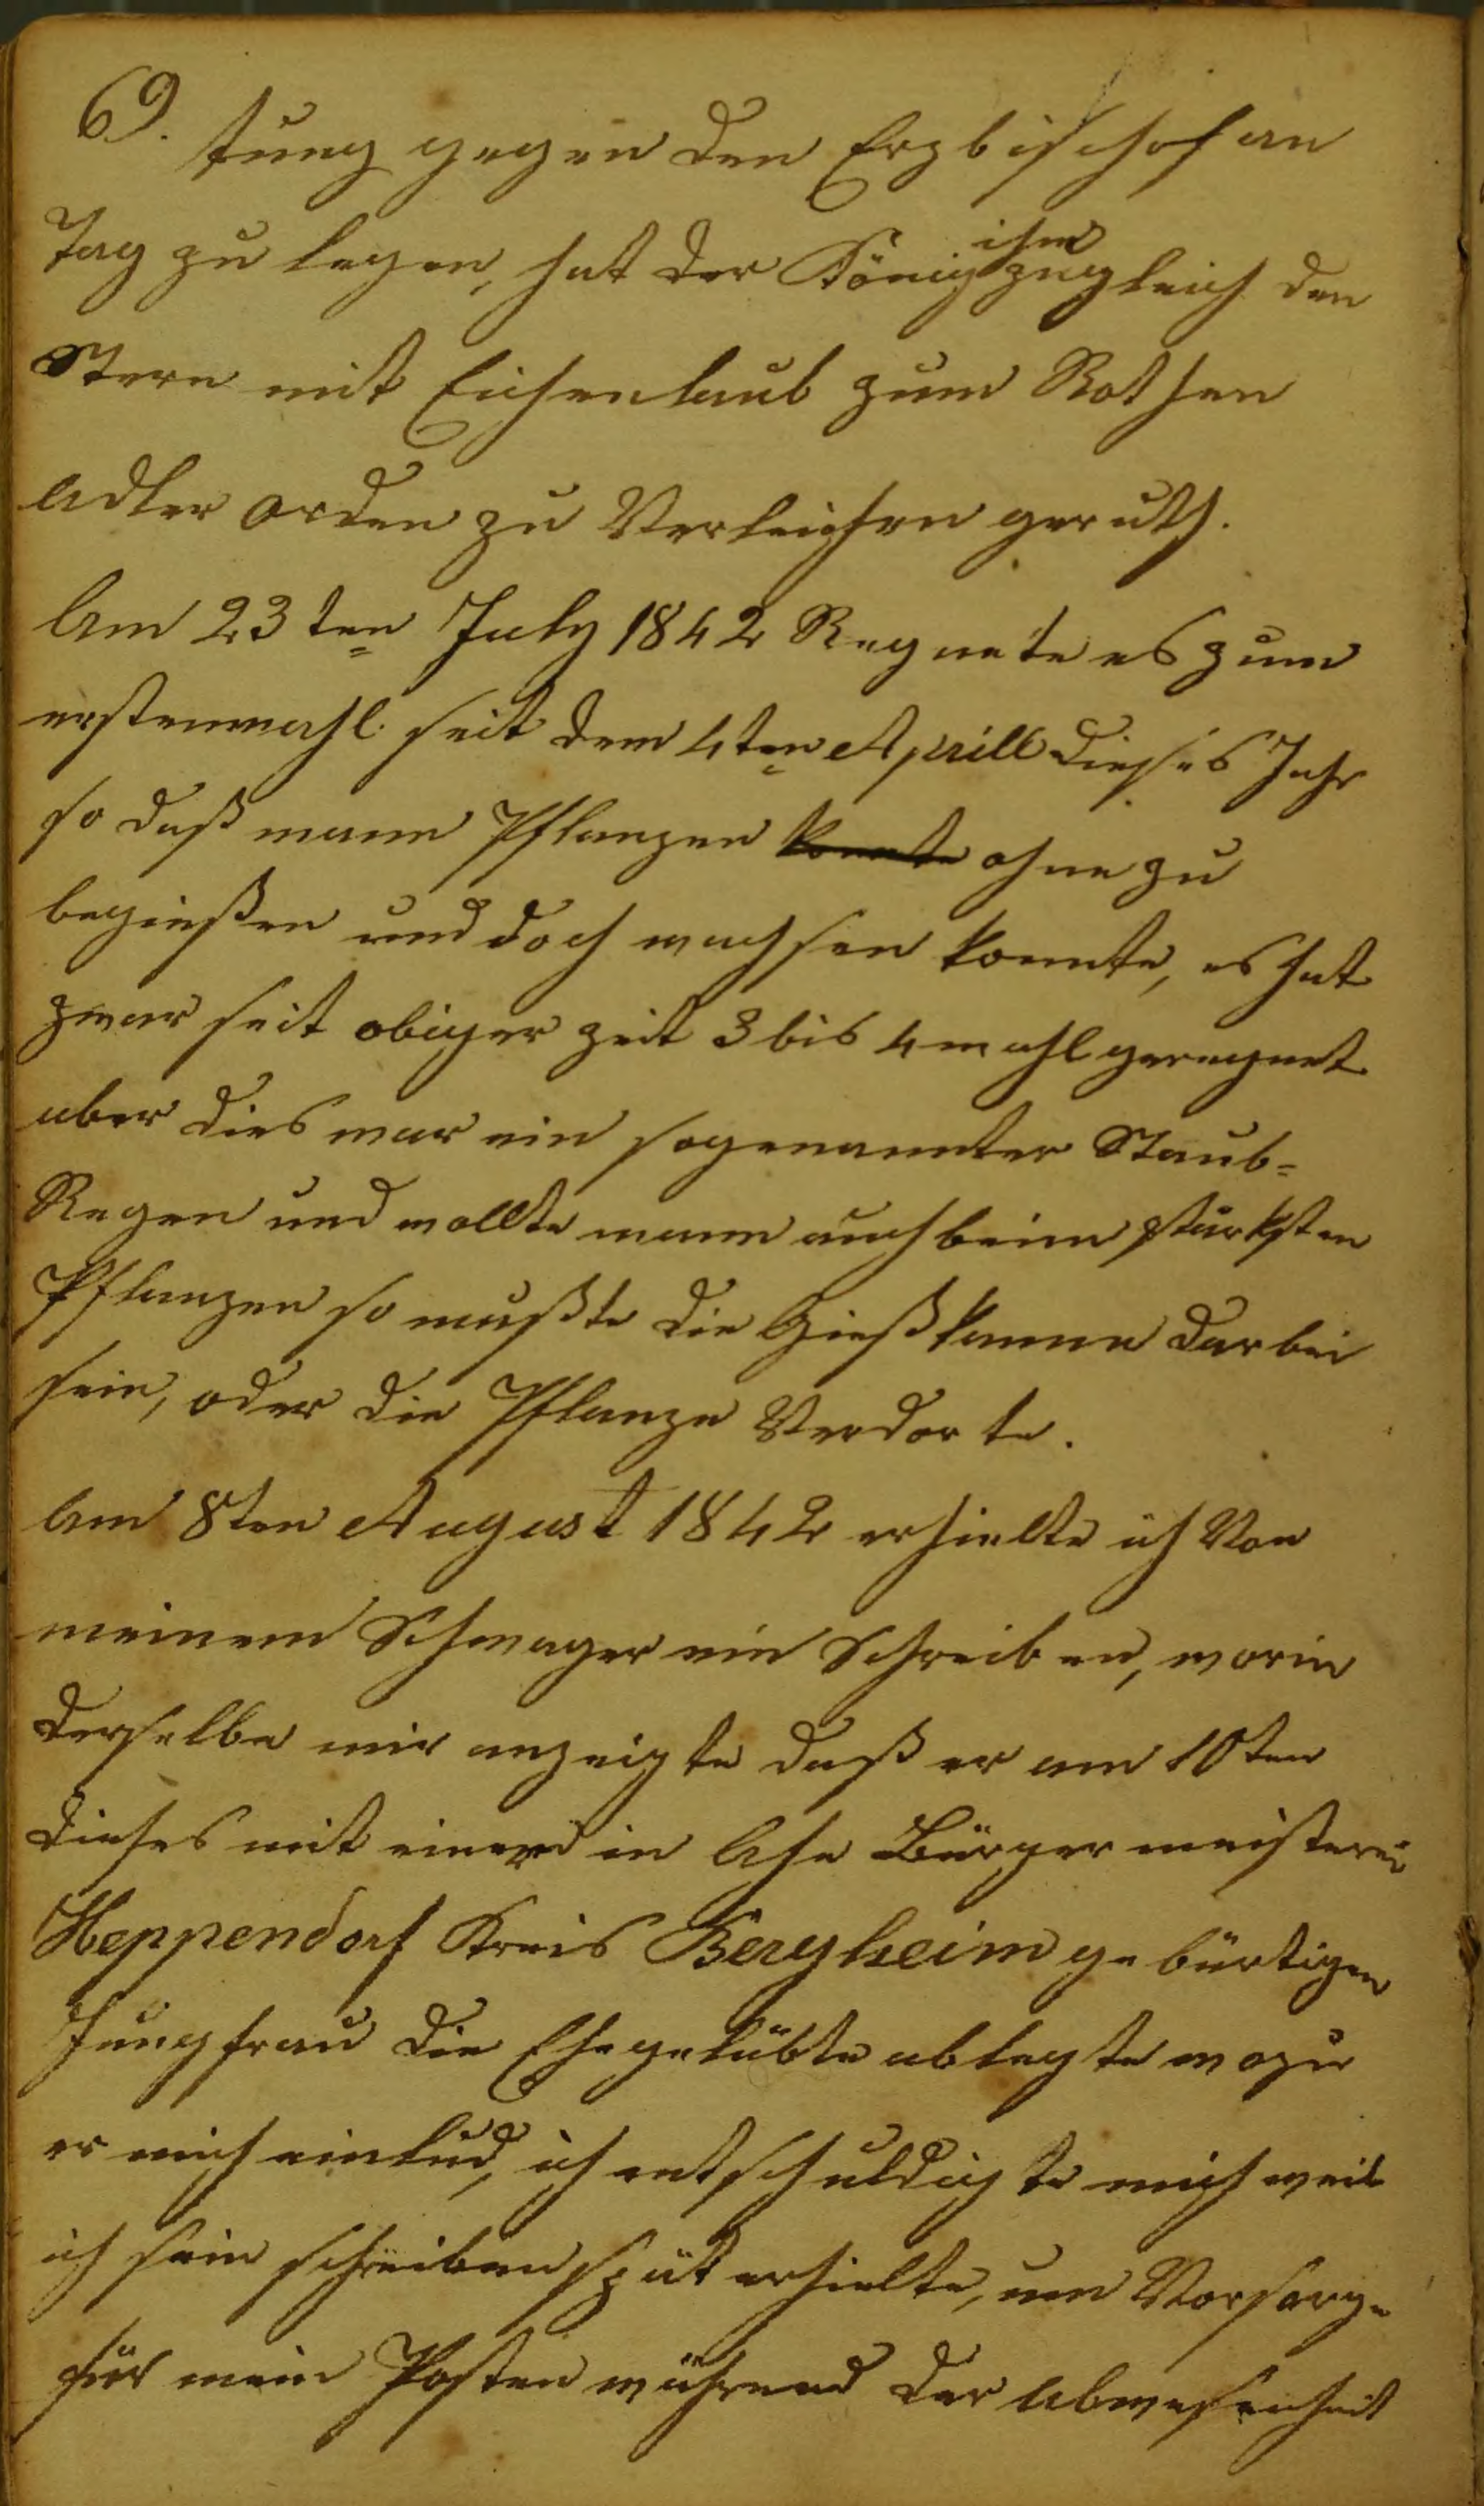 69. tung gegen den Erzbischof an
Tag zu legen, hat der König ihm zugleich den
Stern mit Eichenlaub zum Rothen
Adler orden zu Verleihen geruth.
Am 23ten July 1842 Regnete es zum
erstenmahl seit dem 4ten Aprill dieses Jahr
so daß mann Pflanzen konnte ohne zu
begießen und doch wachsen konnte, es hat
zwar seit obiger zeit 3 bis 4 mahl geregnet
aber dies war ein sogenannter Staub=
Regen und wollte mann auch beim stärksten
Pflanzen so mußte die Gießkanne darbei
sein, oder die Pflanze Verdorte.
Am 8ten August 1842 erhielte ich Von
meinem Schwager ein Schreiben, worin
derselbe mir anzeigte daß er am 10ten
dieses mit einer in Ahe Bürgermeisterei
Heppendorf Kreis Bergheim gebürtigen
Jungfrau die Ehegelübte ablegte wozu
er mich einlud, ich entschuldigte mich weil
ich sein schreiben spät erhielte, um Vorsorge
für mein Posten während der Abwesenheit